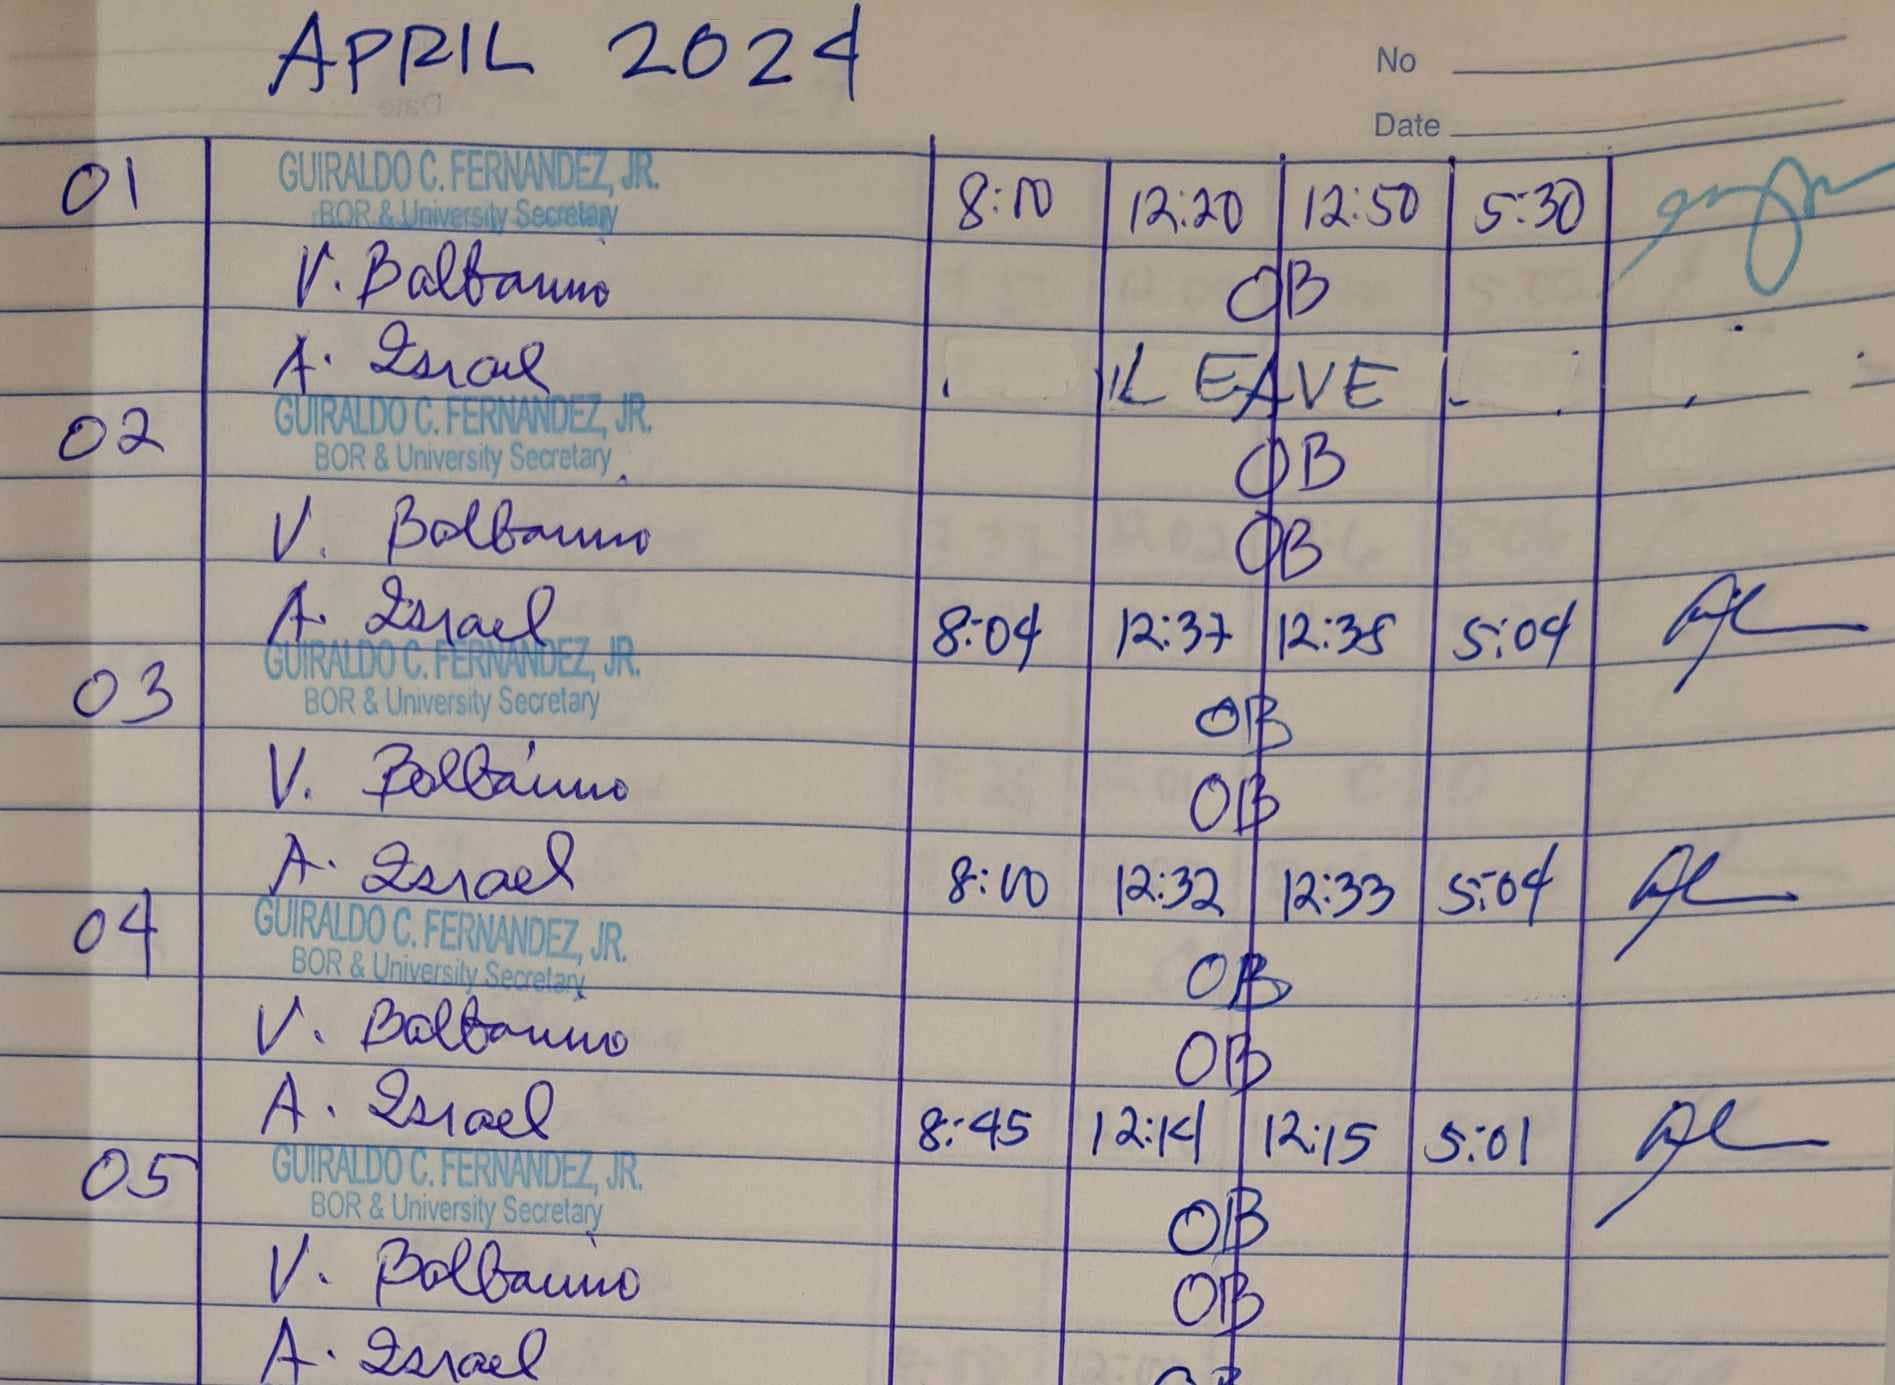 APRIL 2024
No
Date
01 GUIRALDO C. FERNANDEZ, JR. 8:10 12:20 12:50 5:30
BOR & University Secretary
V. Balbarino OB
A. Israel LEAVE
02 GUIRALDO C. FERNANDEZ, JR. OB
BOR & University Secretary
V. Balbarino OB
A. Israel 8:04 12:37 12:38 5:04
03 GUIRALDO C. FERNANDEZ, JR. OB
BOR & University Secretary
V. Balbarino OB
A. Israel 8:10 12:32 12:33 5:04
04 GUIRALDO C. FERNANDEZ, JR. OB
BOR & University Secretary
V. Balbarino OB
A. Israel 8:45 12:14 12:15 5:01
05 GUIRALDO C. FERNANDEZ, JR. OB
BOR & University Secretary
V. Balbarino OB
A. Israel